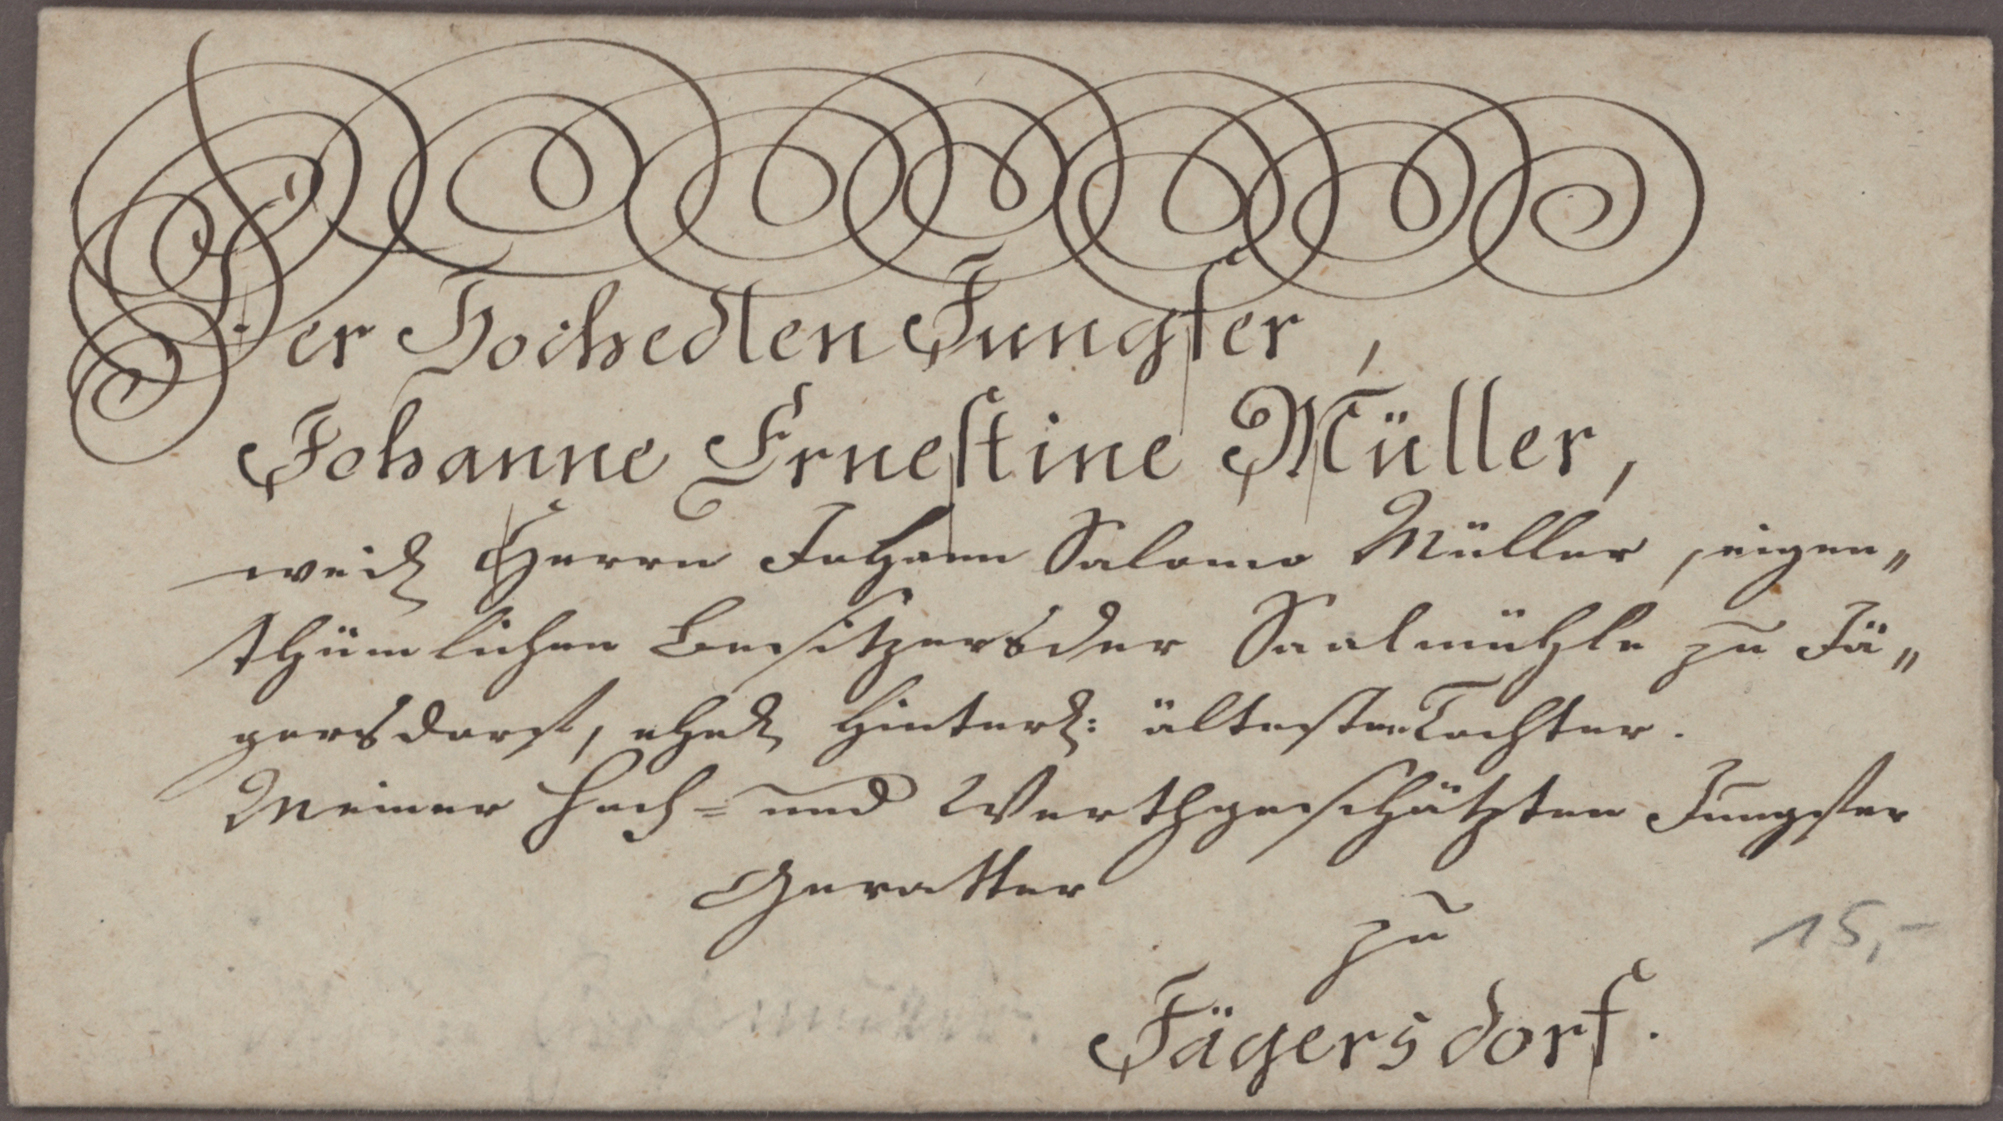 Der Hochedlen Jungfer,
Johanne Ernestine Müller,
weil. Herrn Johann Salomo Müller, eigen„
thümlichen Besitzers der Saalmühle zu Jä„
gersdorf, ehel. hinterl: ältesten Tochter.
Meiner Hoch= und Werthgeschätzten Jungfer
Gevatter
zu
Jägersdorf.
15,-